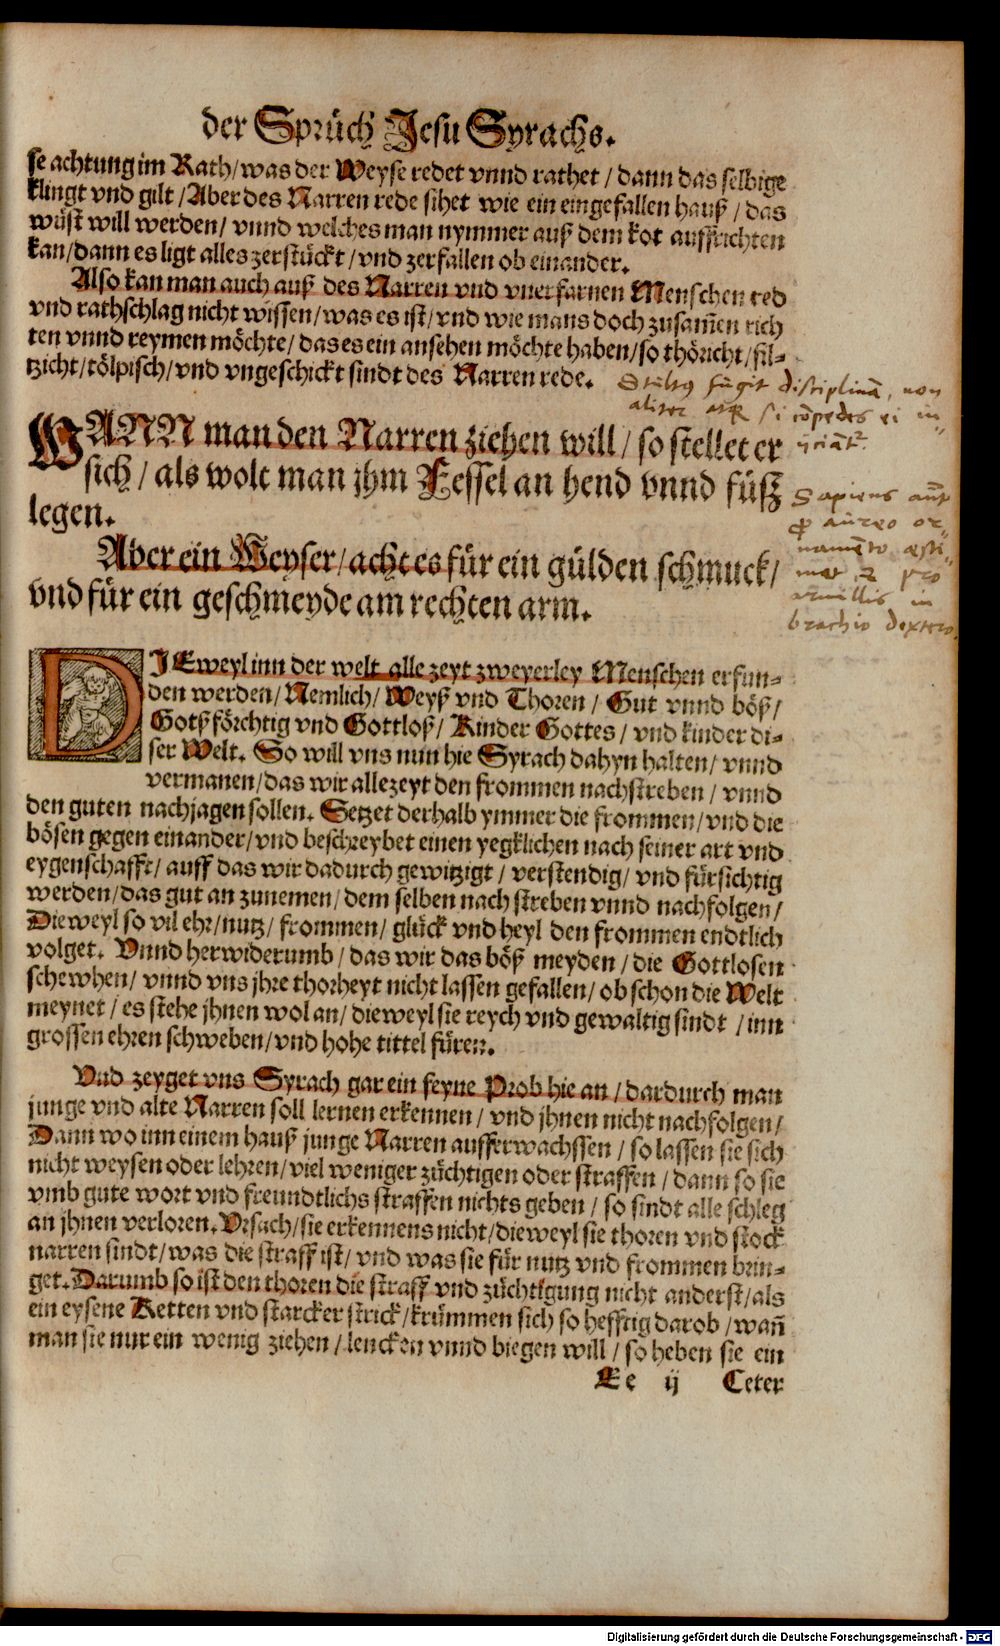 der Sprüch Jesu Syrachs.
se achtung im Rath/was der Weyse redet vnnd rathet / dann das selbige
klingt vnd gilt /Aber des Narren rede sihet wie ein eingefallen hauß / das
wüst will werden/ vnnd welches man nymmer auß dem kot auffrichten
kan/dann es ligt alles zerstückt / vnd zerfallen ob einander.
Also kan man auch auß des Narren vnd vnerfarnen Menschen red
vnd rathschlag nicht wissen/was es ist/ vnd wie mans doch zusam̃en rich
ten vnnd reymen möchte/ das es ein ansehen möchte haben/so thöricht/fil-
tzicht/tölpisch/vnd vngeschickt sindt des Narren rede.
Stultꝰ fugit disciplinā, non
aliter atqꝫ si cōpedes ei in=
ijciāt̃.
WANN man den Narren ziehen will / so stellet er
sich / als wolt man jhm Fessel an hend vnnd füsz
legen.
Sapiens aūt
ꝓ aureo or=
namēto æsti=
mat, & pro
armillis in
brachio dextro.
Aber ein Weyser/acht es für ein gülden schmuck/
vnd für ein geschmeyde am rechten arm.
DIEweyl inn der welt alle zeyt zweyerley Menschen erfun-
den werden/ Nemlich/ Weyß vnd Thoren / Gut vnnd böß/
Gotßförchtig vnd Gottloß/ Kinder Gottes / vnd kinder di-
ser Welt. So will vns nun hie Syrach dahyn halten/ vnnd
vermanen/das wir allezeyt den frommen nachstreben / vnnd
den guten nachjagen sollen. Setzet derhalb ymmer die frommen/vnd die
bösen gegen einander/vnd beschreybet einen yegklichen nach seiner art vnd
eygenschafft/ auff das wir dadurch gewitzigt / verstendig/ vnd fürsichtig
werden/das gut an zunemen/ dem selben nach streben vnnd nachfolgen/
Dieweyl so vil ehr/nutz/ frommen/ glück vnd heyl den frommen endtlich
volget. Vnnd herwiderumb / das wir das böß meyden / die Gottlosen
schewhen/ vnnd vns jhre thorheyt nicht lassen gefallen/ ob schon die Welt
meynet / es stehe jhnen wol an/ dieweyl sie reych vnd gewaltig sindt / inn
grossen ehren schweben/vnd hohe tittel füren.
Vnd zeyget vns Syrach gar ein feyne Prob hie an / dardurch man
junge vnd alte Narren soll lernen erkennen / vnd jhnen nicht nachfolgen/
Dann wo inn einem hauß junge Narren aufferwachssen / so lassen sie sich
nicht weysen oder lehren/viel weniger züchtigen oder straffen / dann so sie
vmb gute wort vnd freundtlichs straffen nichts geben / so sindt alle schleg
an jhnen verloren. Vrsach/sie erkennens nicht/dieweyl sie thoren vnd stock
narren sindt/was die straff ist/ vnd was sie für nutz vnd frommen brin-
get. Darumb so ist den thoren die straff vnd züchtigung nicht anderst/als
ein eysene Ketten vnd starcker strick/krümmen sich so hefftig darob /wañ
man sie nur ein wenig ziehen /lencken vnnd biegen will / so heben sie ein
Ee ij Ceter
Digitalisierung gefördert durch die Deutsche Forschungsgemeinschaft - DFG